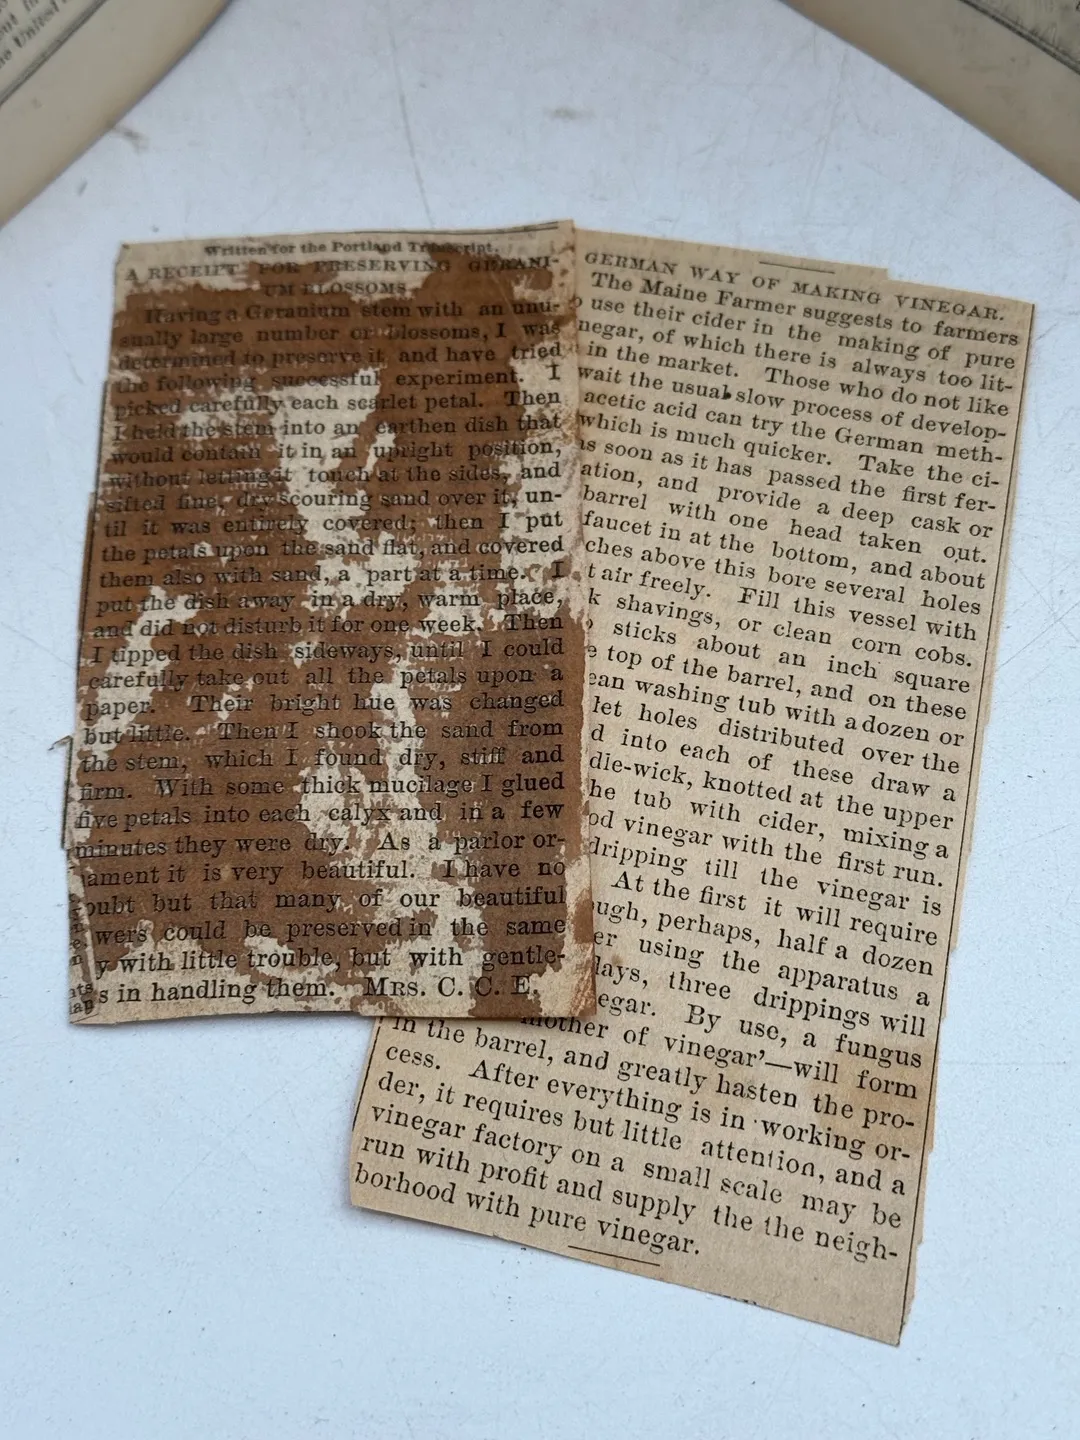 Written for the Portland Transcript.
A RECEIPT FOR PRESERVING GERANI-
UM BLOSSOMS
Having a Geranium stem with an unu-
sually large number or blossoms, I was
determined to preserve it, and have tried
the following successful experiment. I
picked carefully each scarlet petal. Then
I held the stem into an earthen dish that
would contain it in an upright position,
without letting it touch at the sides, and
sifted fine, dry scouring sand over it, un-
til it was entirely covered; then I put
the petals upon the sand flat, and covered
them also with sand, a part at a time. I
put the dish away in a dry, warm place,
and did not disturb it for one week. Then
I tipped the dish sideways, until I could
carefully take out all the petals upon a
paper. Their bright hue was changed
but little. Then I shook the sand from
the stem, which I found dry, stiff and
firm. With some thick mucilage I glued
five petals into each calyx and in a few
minutes they were dry. As a parlor or-
nament it is very beautiful. I have no
oubt but that many of our beautiful
wers could be preserved in the same
y with little trouble, but with gentle-
s in handling them. MRS. C. C. E.
GERMAN WAY OF MAKING VINEGAR.
The Maine Farmer suggests to farmers
o use their cider in the making of pure
negar, of which there is always too lit-
in the market. Those who do not like
wait the usual slow process of develop-
acetic acid can try the German meth-
which is much quicker. Take the ci-
as soon as it has passed the first fer-
ation, and provide a deep cask or
barrel with one head taken out.
faucet in at the bottom, and about
ches above this bore several holes
t air freely. Fill this vessel with
k shavings, or clean corn cobs.
sticks about an inch square
e top of the barrel, and on these
ean washing tub with a dozen or
let holes distributed over the
d into each of these draw a
dle-wick, knotted at the upper
he tub with cider, mixing a
od vinegar with the first run.
dripping till the vinegar is
At the first it will require
ugh, perhaps, half a dozen
er using the apparatus a
days, three drippings will
egar. By use, a fungus
mother of vinegar'—will form
in the barrel, and greatly hasten the pro-
cess. After everything is in working or-
der, it requires but little attention, and a
vinegar factory on a small scale may be
run with profit and supply the the neigh-
borhood with pure vinegar.